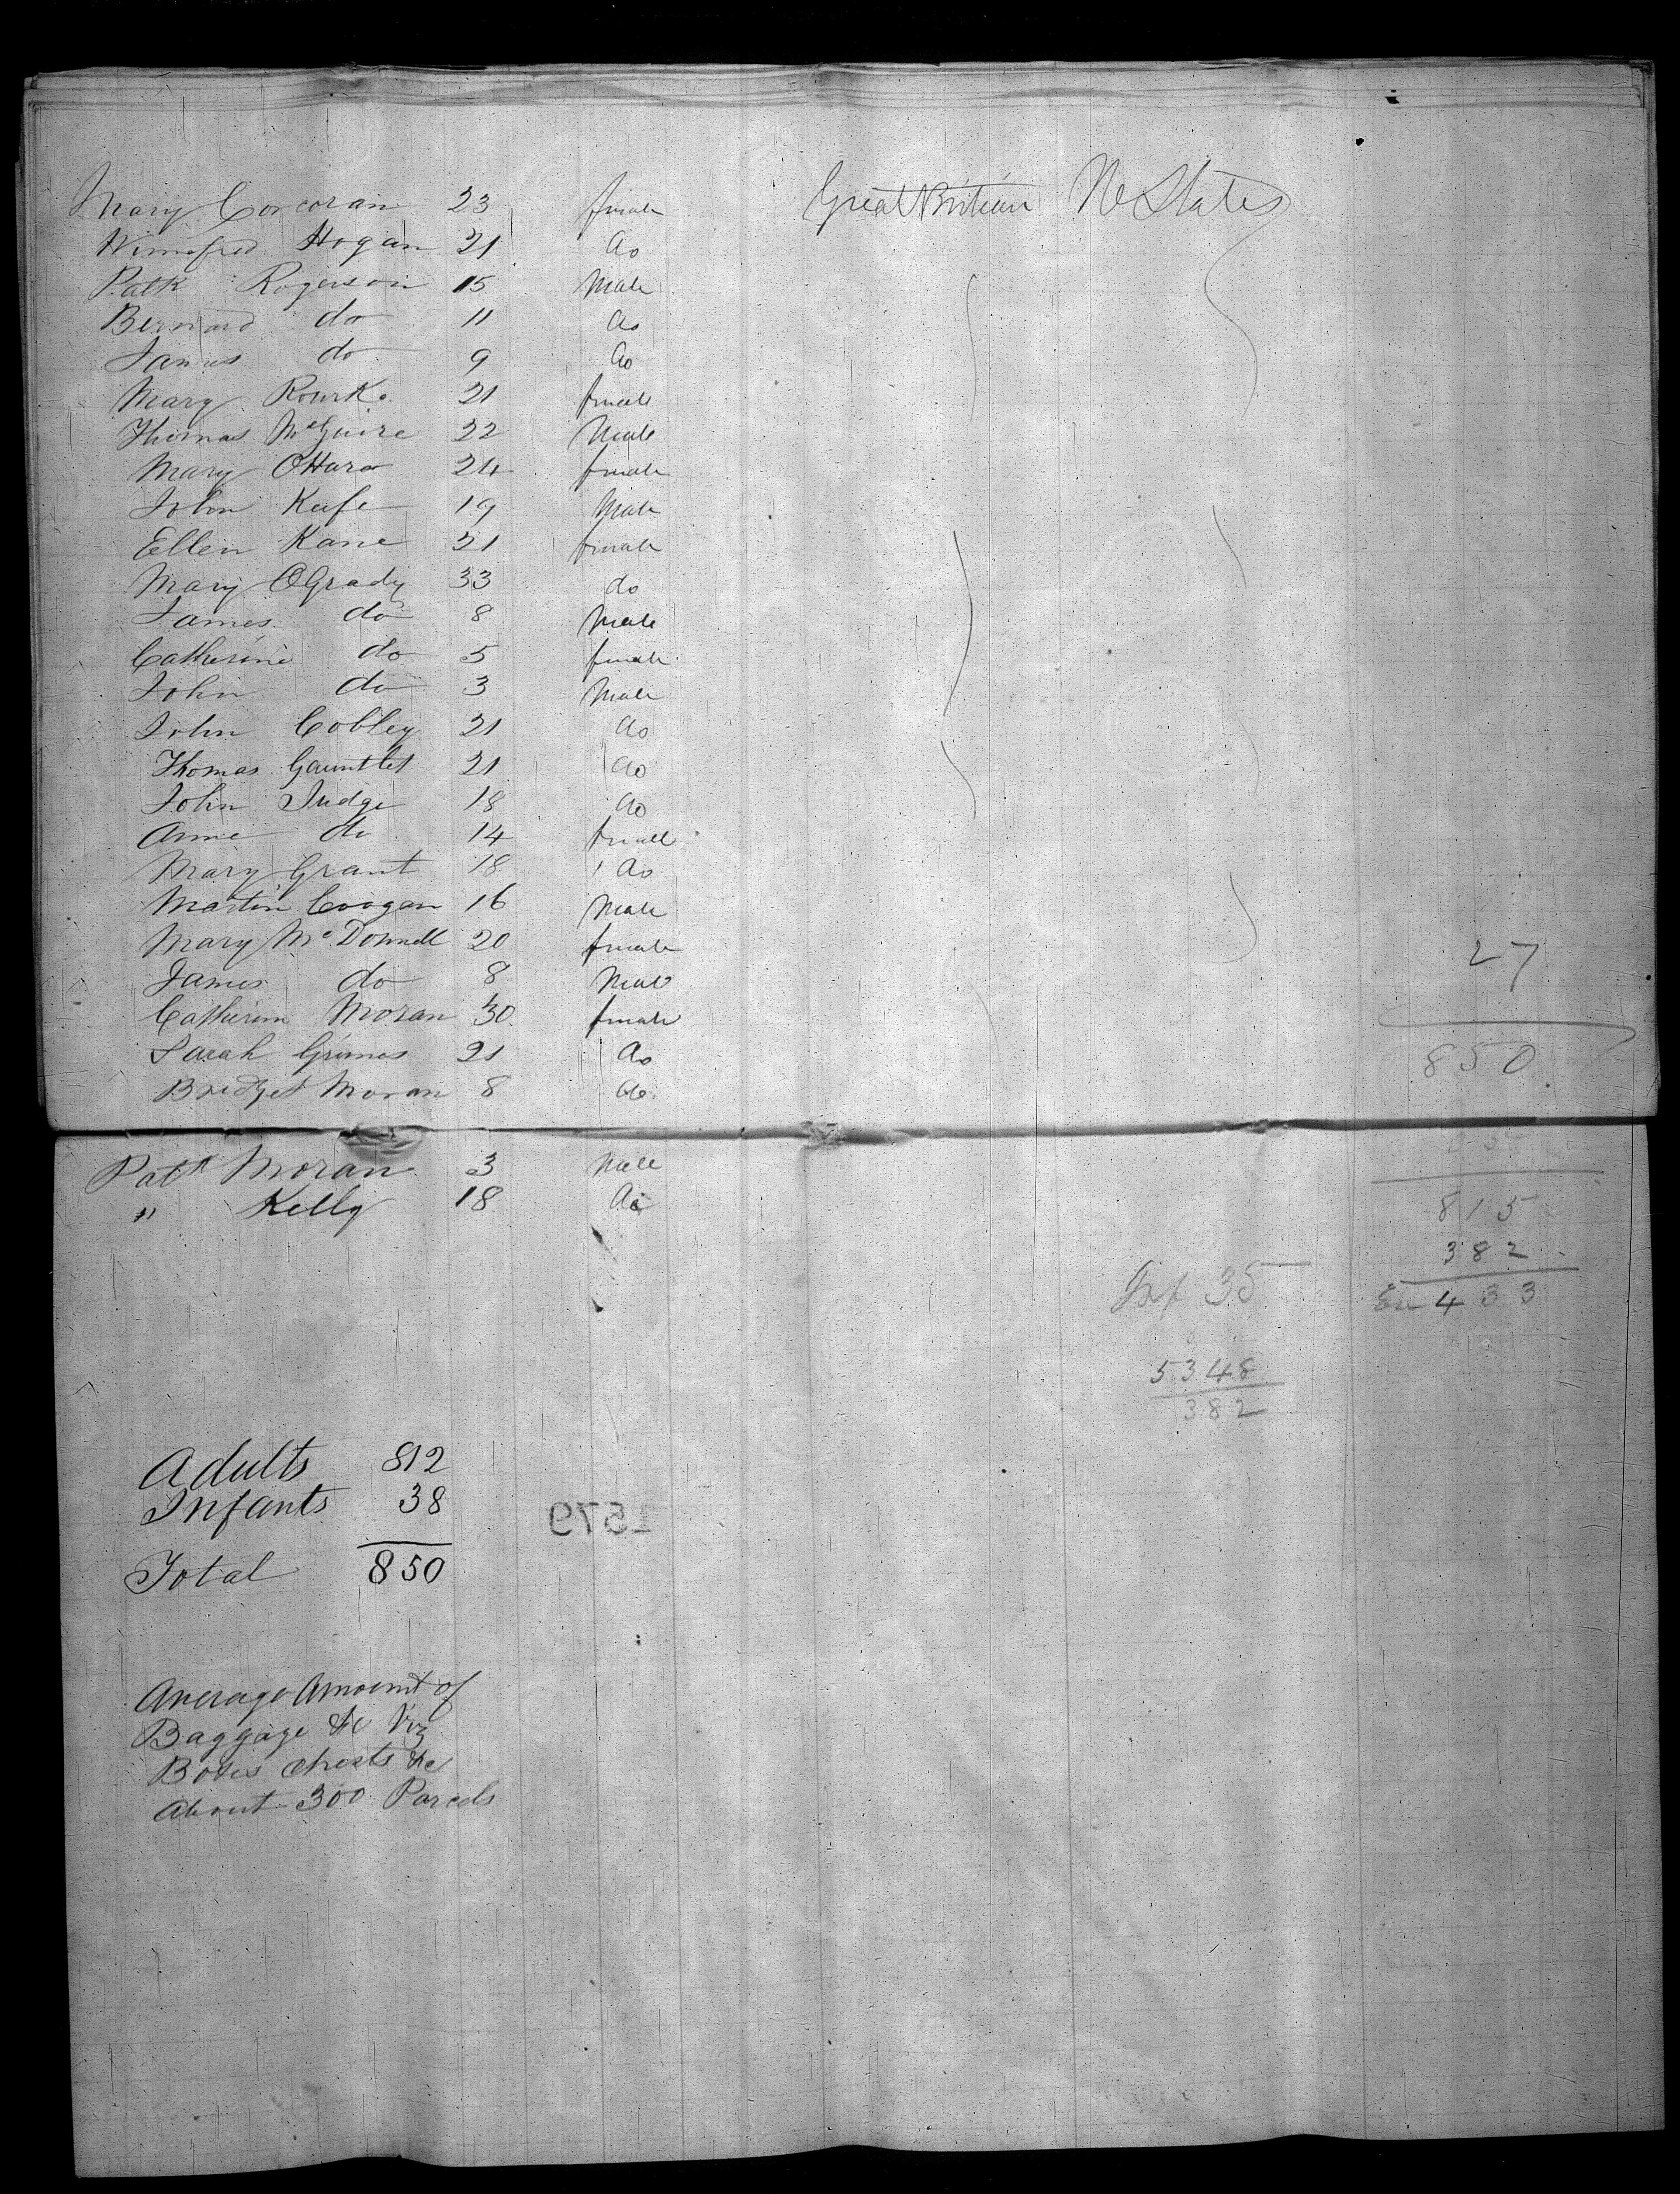 Mary Corcoran 23 female Great Britian U States
Winnefred Hogan 21 do
Patk Rogerson 15 Male
Bernard do 11 do
James do 9 do
Mary Rourke 21 female
Thomas McGuire 22 Male
Mary OHara 24 female
John Keefe 19 Male
Ellen Kane 21 female
Mary OGrady 33 do
James do 8 Male
Catherine do 5 female
John do 3 Male
John Cobley 21 do
Thomas Gauntlet 21 do
John Judge 18 do
Anne do 14 female
Mary Grant 18 do
Martin Coogan 16 Male
Mary McDonnell 20 female
James do 8 Male
27
Catherine Moran 30 female
Sarah Grimes 21 do
850
Bridget Moran 8 do
35
Patk Moran 3 Male
" Kelly 18 do
815
382
Inf 35
433
5348
382
Adults 812
Infants 38
1579
Total 850
Average Amount of
Baggage &c Viz
Boxes Chests &c
About 300 Parcels